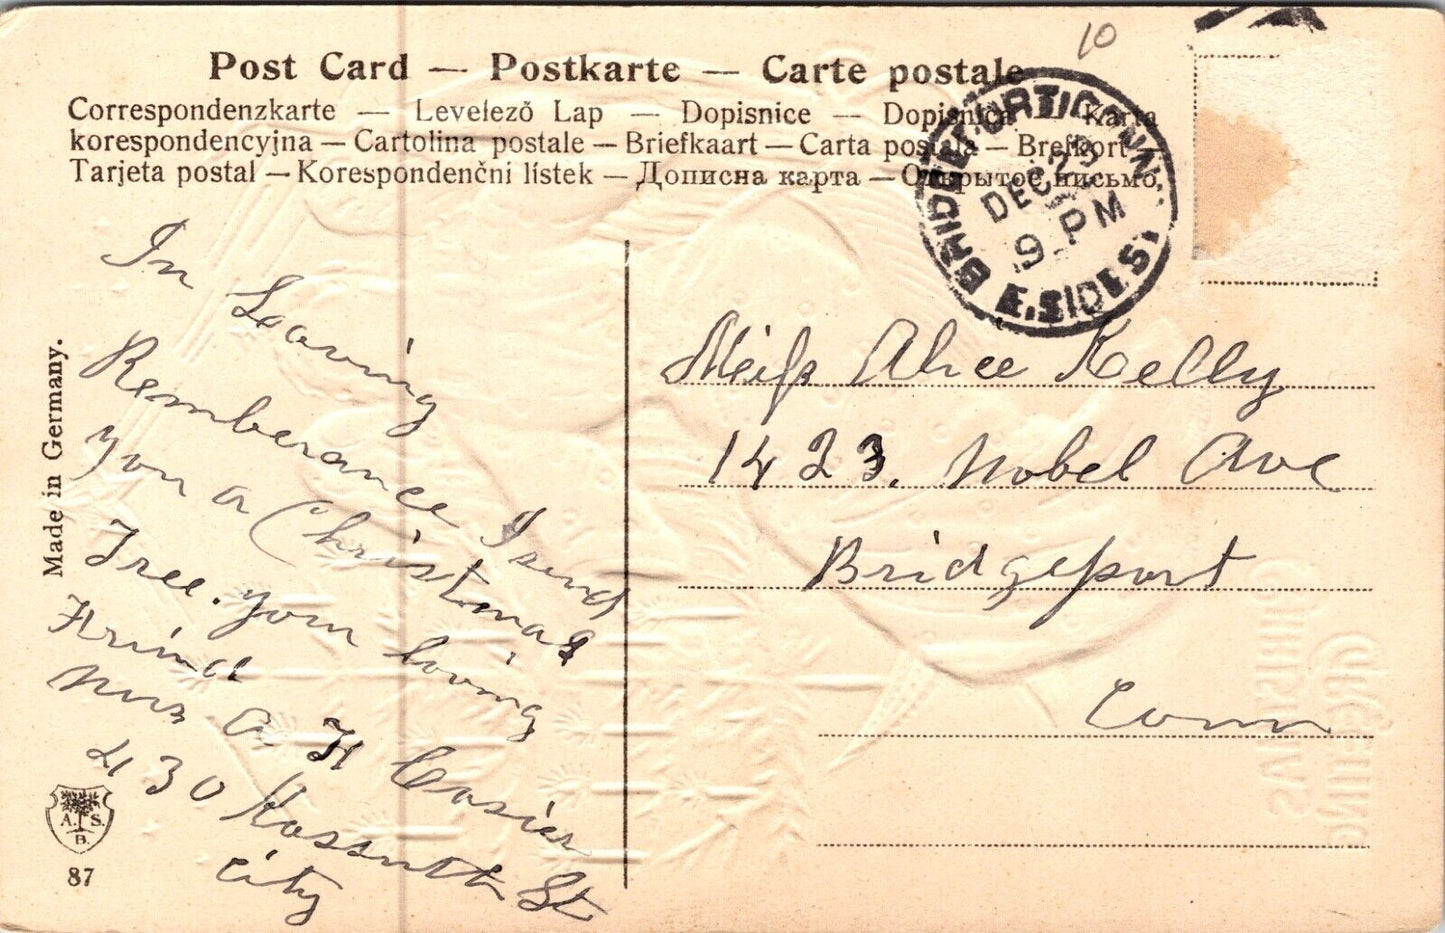 10
Post Card — Postkarte — Carte postale
Correspondenzkarte — Levelező Lap — Dopisnice — Dopisnica — Karta
korespondencyjna — Cartolina postale — Briefkaart — Carta postala — Brefkort
Tarjeta postal — Korespondenčni lístek — Дописна карта — Открытое письмо.
BRIDGEPORT CONN.
DEC 23
9 PM
E. SIDE S.
In Loving
Remberance I send
you a Christmas
Tree. your loving
Frind
Mrs A H Cosier
430 Kossuth St
City
Miss Alice Kelly
1423. Nobel Ave
Bridgeport
Conn
Made in Germany.
A. S.
B.
87
CHRISTMAS
GREETING